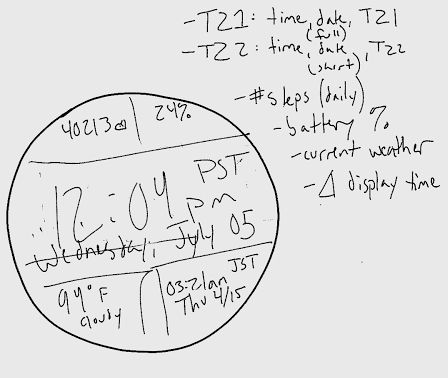 -TZ1: time, date, TZ1
(full)
-TZ2: time, date, TZ2
(short)
-#steps (daily)
-battery %
-current weather
-△ display time
40213
24%
12:04 PST
pm
Wednesday, July 05
99°F
cloudy
03:21am JST
Thu 4/15